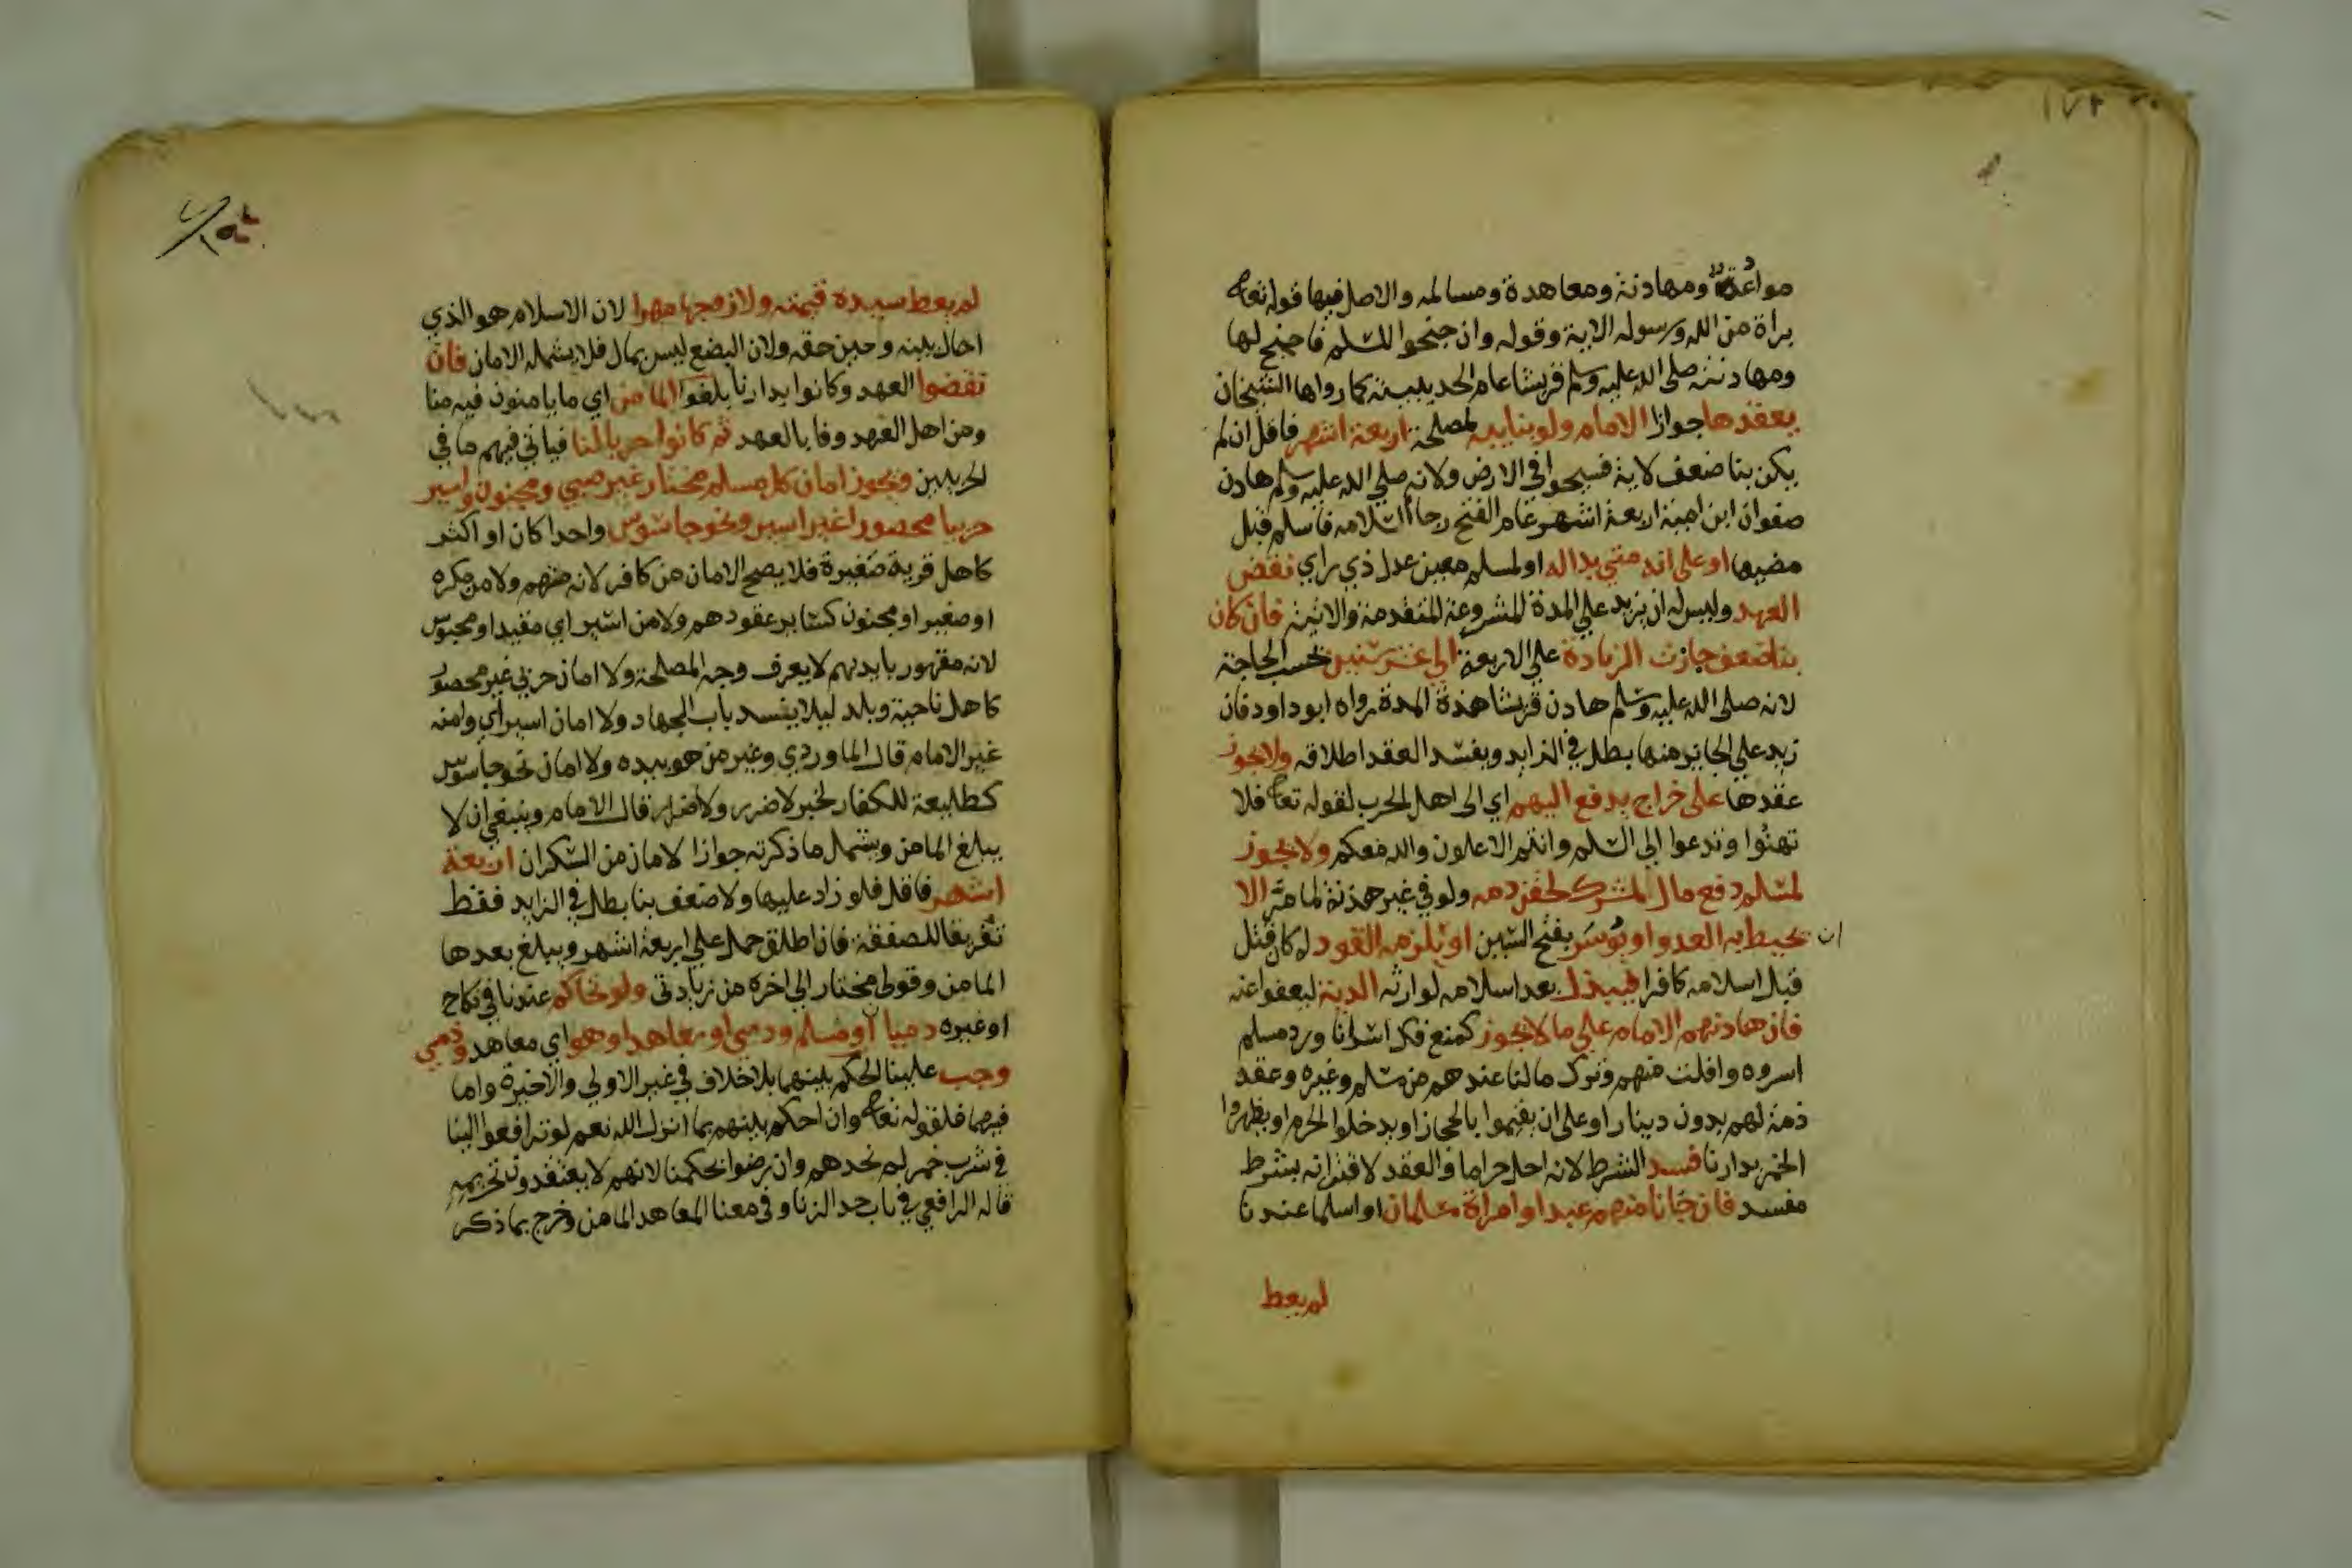 ١٧٢
موادعة ومهادنة ومعاهدة ومسالمه والاصل فيها قوله تعا
براة من الله ورسوله الاية وقوله وان جنحوا للسلم فاجنح لها
ومهادنته صلى الله عليه وسلم قريشا عام الحديبية كما رواها الشيخان
يعقدها جوازا الامام ولو بنايبه لمصلحة اربعة اشهر فاقل ان لم
يكن بنا ضعف لاية فسيحوا في الارض ولانه صلي الله عليه وسلم هادن
صفوان ابن امية اربعة اشهر عام الفتح رجا اسلامه فاسلم قبل
مضيها او على انه متي بدا له او لمسلم معين عدل ذي راي نقض
العهد وليس له ان يزيد علي المدة المشروعة المتقدمة والاتية فان كان
بنا ضعف جازت الزيادة علي الاربعة الي عشر سنين بحسب الحاجة
لانه صلى الله عليه وسلم هادن قريشا هذة المدة رواه ابو داود فان
زيد علي الجايز منها بطل في الزايد ويفسد العقد اطلاقه ولا يجوز
عقدها على خراج يدفع اليهم اي الى اهل الحرب لقوله تعا فلا
تهنوا وتدعوا الي السلم وانتم الاعلون والله معكم ولا يجوز
لمسلم دفع مال لمشرك لحقن دمه ولو في غير هدنة لما مر الا
ان يحيط به العدو او يوسر بفتح السين او يلزمه القود له كان قتل
قبل اسلامه كافرا فيبذل بعد اسلامه لوارثه الدية ليعفوا عنه
فان هادنهم الامام علي ما لا يجوز كمنع فك اسرانا ورد مسلم
اسروه وافلت منهم وترك مالنا عندهم من مسلم وغيره وعقد
ذمة لهم بدون دينار او على ان يقيموا بالحجاز او يدخلوا الحرم او يظهروا
الخمر بدارنا فسد الشرط لانه احل حراما والعقد لاقترانه بشرط
مفسد فان جانا منهم عبد او امراة مسلمان او اسلما عندنا
لم يعط
لم يعط سيده قيمته ولا زوجها مهرا لان الاسلام هو الذي
احال بينه وبين حقه ولان البضع ليس بمال فلا يشمله الامان فان
نقضوا العهد وكانوا بدارنا بلغوا المامن اي ما يامنون فيه منا
ومن اهل العهد وفا بالعهد ثم كانوا حربا لنا فياتي فيهم ما في
الحربيين ويجوز امان كل مسلم مختار غير صبي ومجنون واسير
حربيا محصورا غير اسير ونحو جاسوس واحدا كان او اكثر
كاهل قرية صغيرة فلا يصح الامان من كافر لانه متهم ولا من مكره
او صغير او مجنون كساير عقودهم ولا من اسير اي مقيد او محبوس
لانه مقهور بايديهم لا يعرف وجه المصلحة ولا امان حربي غير محصور
كاهل ناحية وبلد ليلا ينسد باب الجهاد ولا امان اسير اي وامنه
غير الامام قال الماوردي وغير من هو بيده ولا امان نحو جاسوس
كطليعة للكفار لخبر لا ضرر ولا ضرار قال الامام وينبغي ان لا
يبلغ المامن ويشمل ما ذكرته جوازا لامان من السكران اربعة
اشهر فاقل فلو زاد عليها ولا ضعف بنا بطل في الزايد فقط
تفريقا للصفقة فان اطلق حمل علي اربعة اشهر ويبلغ بعدها
المامن وقولي مختار الي اخره من زيادتي ولو تحاكم عندنا في نكاح
او غيره ذميا او مسلم وذمي او معاهد او هو اي معاهد وذمي
وجب علينا الحكم بينهما بلا خلاف في غير الاولي والاخيرة واما
فيهما فلقوله تعا وان احكم بينهم بما انزل الله نعم لو ترافعوا الينا
في شرب خمر لم نحدهم وان رضوا بحكمنا لانهم لا يعتقدون تحريمه
قاله الرافعي في باب حد الزنا وفي معنا المعاهد المامن وخرج بما ذكر